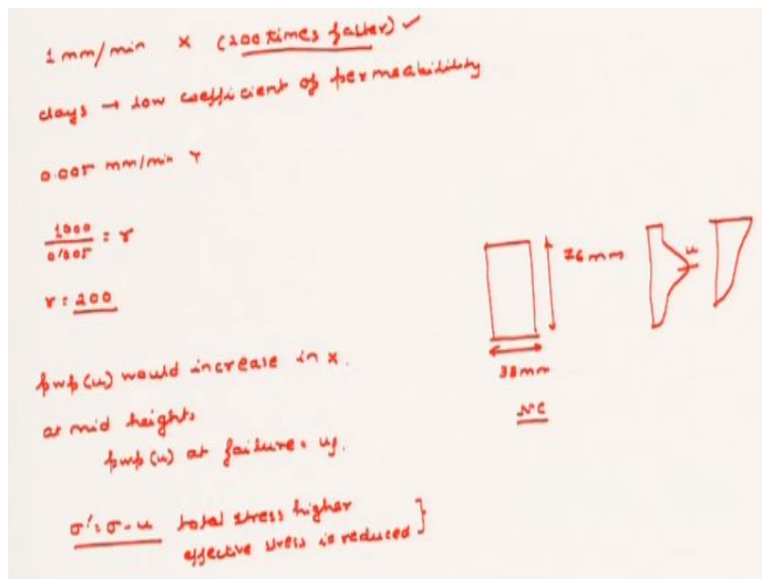 1 mm/min X (200 times faster) ✓
clays → low coefficient of permeability
0.005 mm/min Y
1000
0.005 = r
r = 200
76 mm
u
38 mm
NC
pwp (u) would increase in X.
at mid heights
pwp (u) at failure = uf.
σ' = σ - u total stress higher
effective stress is reduced }